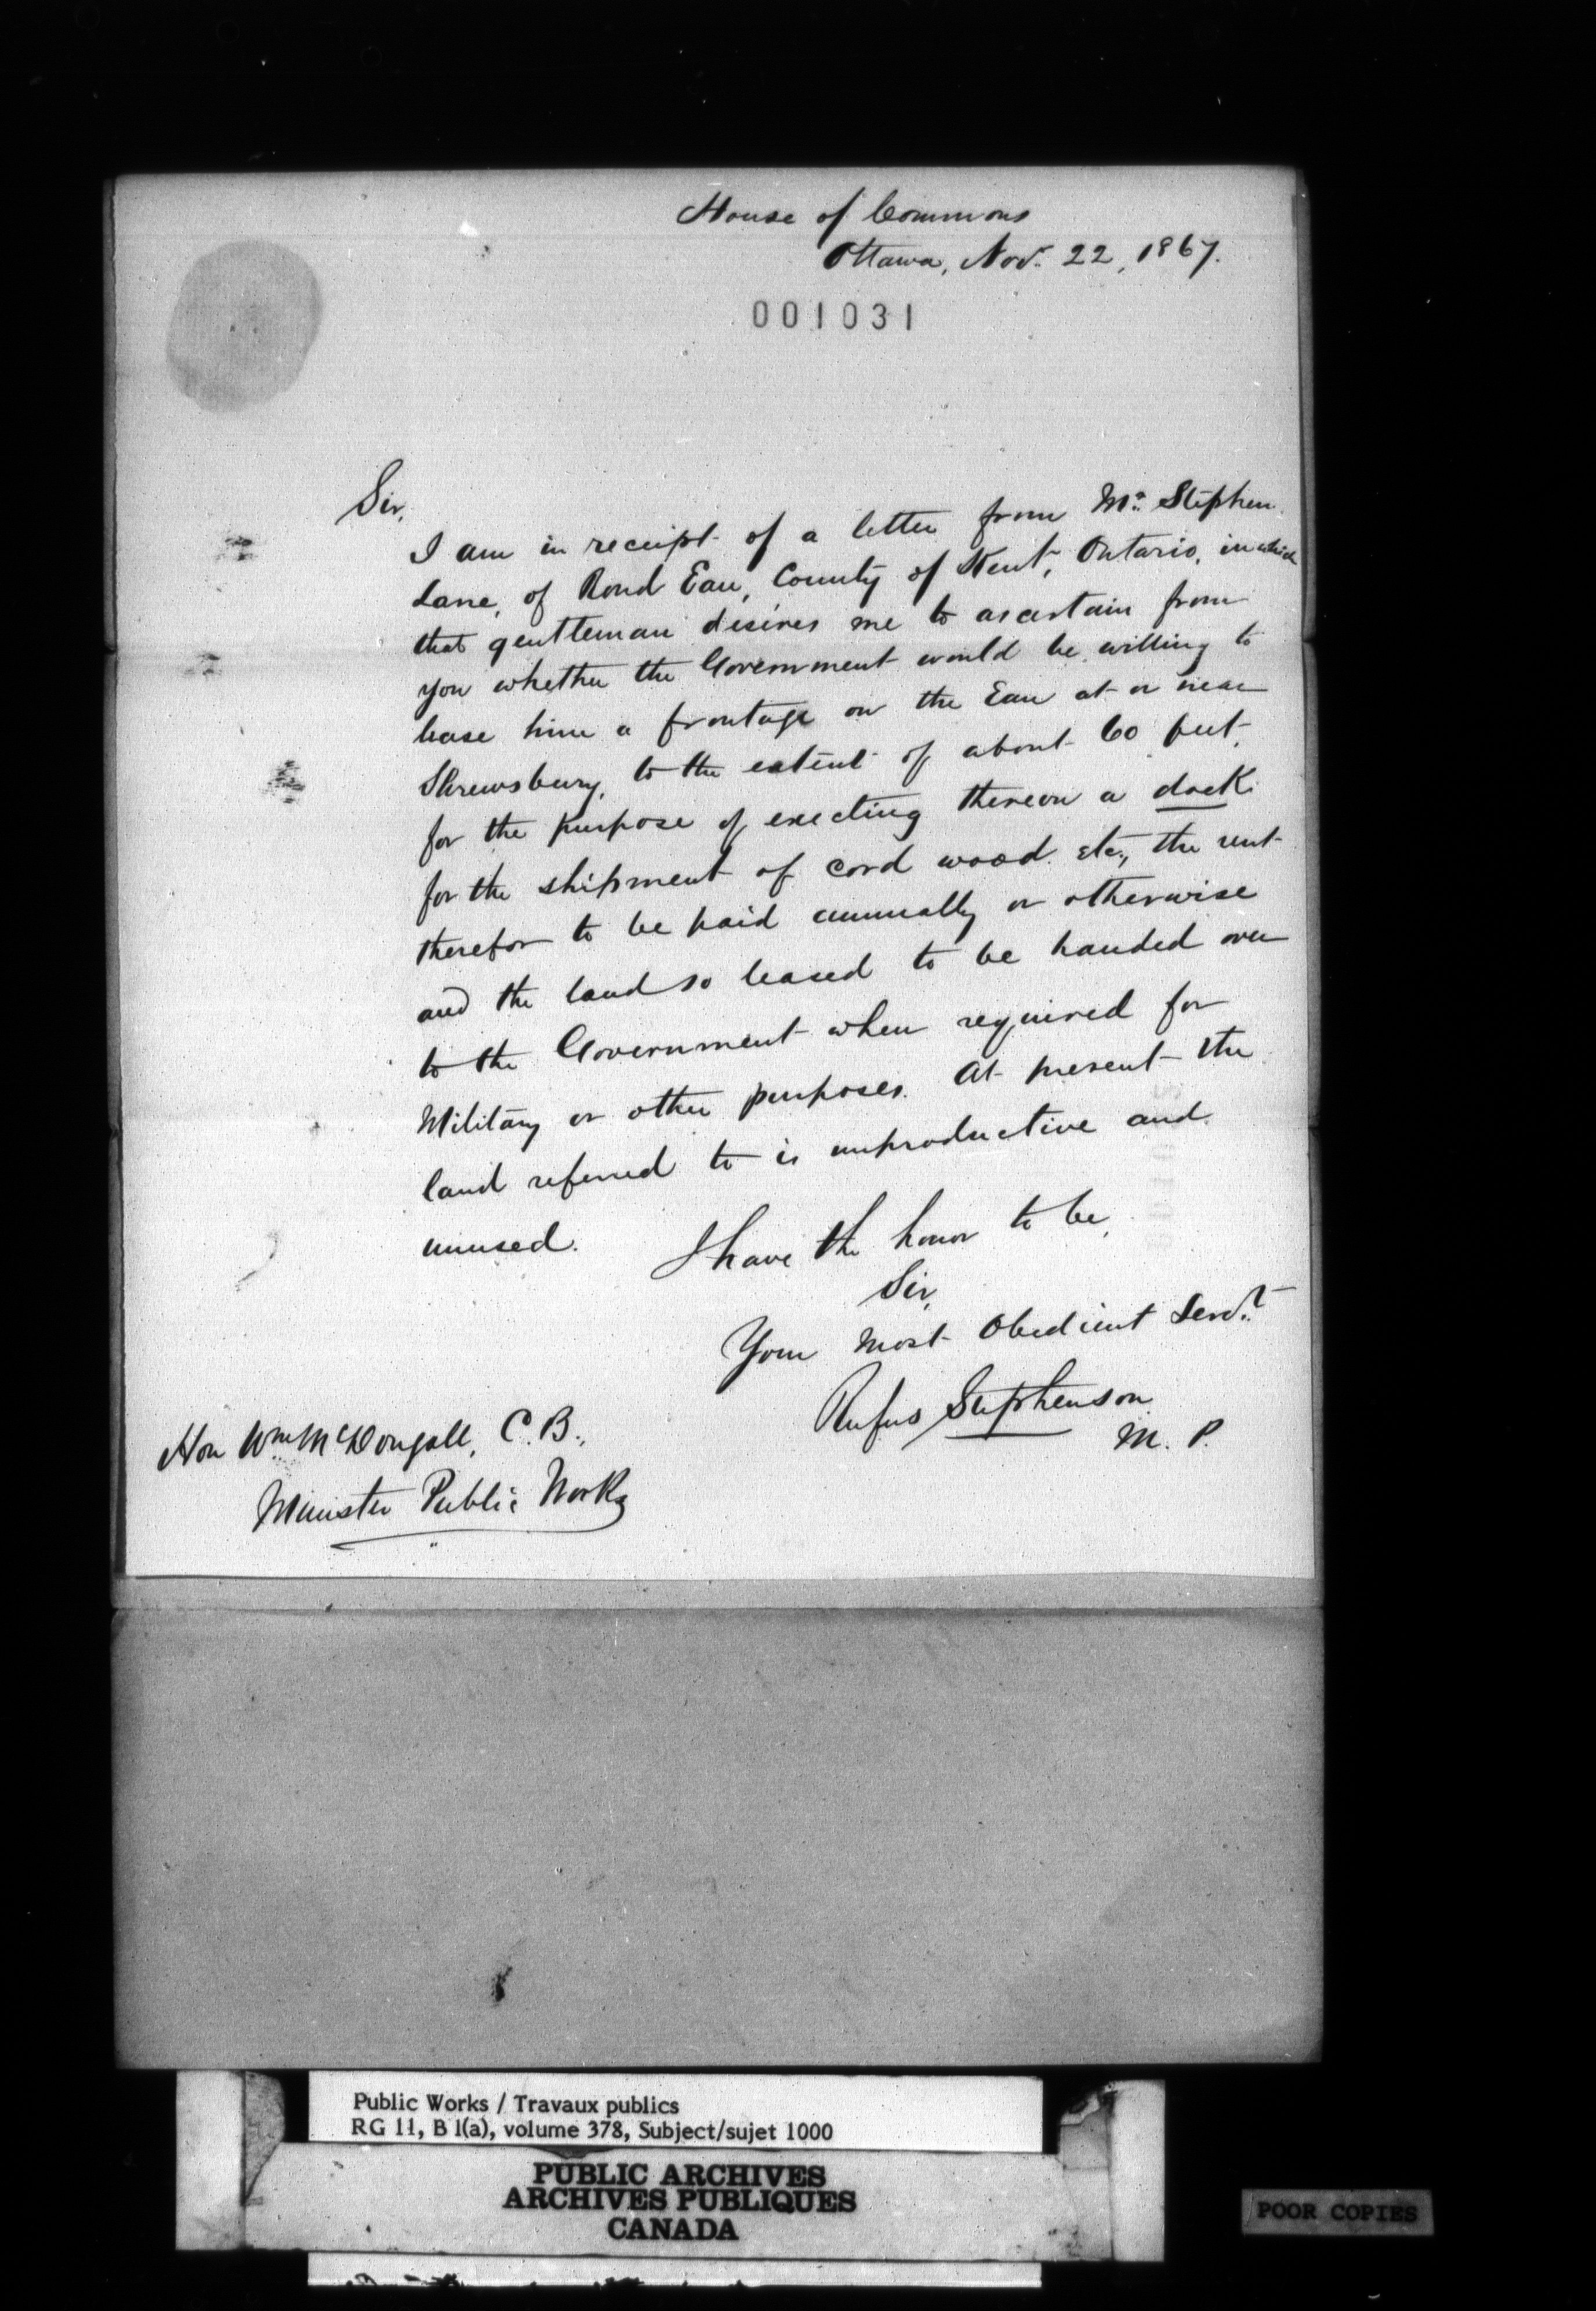 House of Commons
Ottawa, Nov. 22, 1867.
001031
Sir,
I am in receipt of a letter from Mr. Stephen
Lane, of Rond Eau, County of Kent, Ontario, in which
that gentleman desires me to ascertain from
you whether the Government would be willing to
lease him a frontage on the Eau at or near
Shrewsbury, to the extent of about 60 feet,
for the purpose of erecting thereon a dock
for the shipment of cord wood etc., the rent
therefor to be paid annually or otherwise
and the land so leased to be handed over
to the Government when required for
Military or other purposes. At present the
land referred to is unproductive and
unused.
I have the honor to be,
Sir,
Your Most Obedient Servt.
Rufus Stephenson
M. P.
Hon Wm McDougall, C. B.,
Minister Public Works
Public Works / Travaux publics
RG 11, B 1(a), volume 378, Subject/sujet 1000
PUBLIC ARCHIVES
ARCHIVES PUBLIQUES
CANADA
POOR COPIES